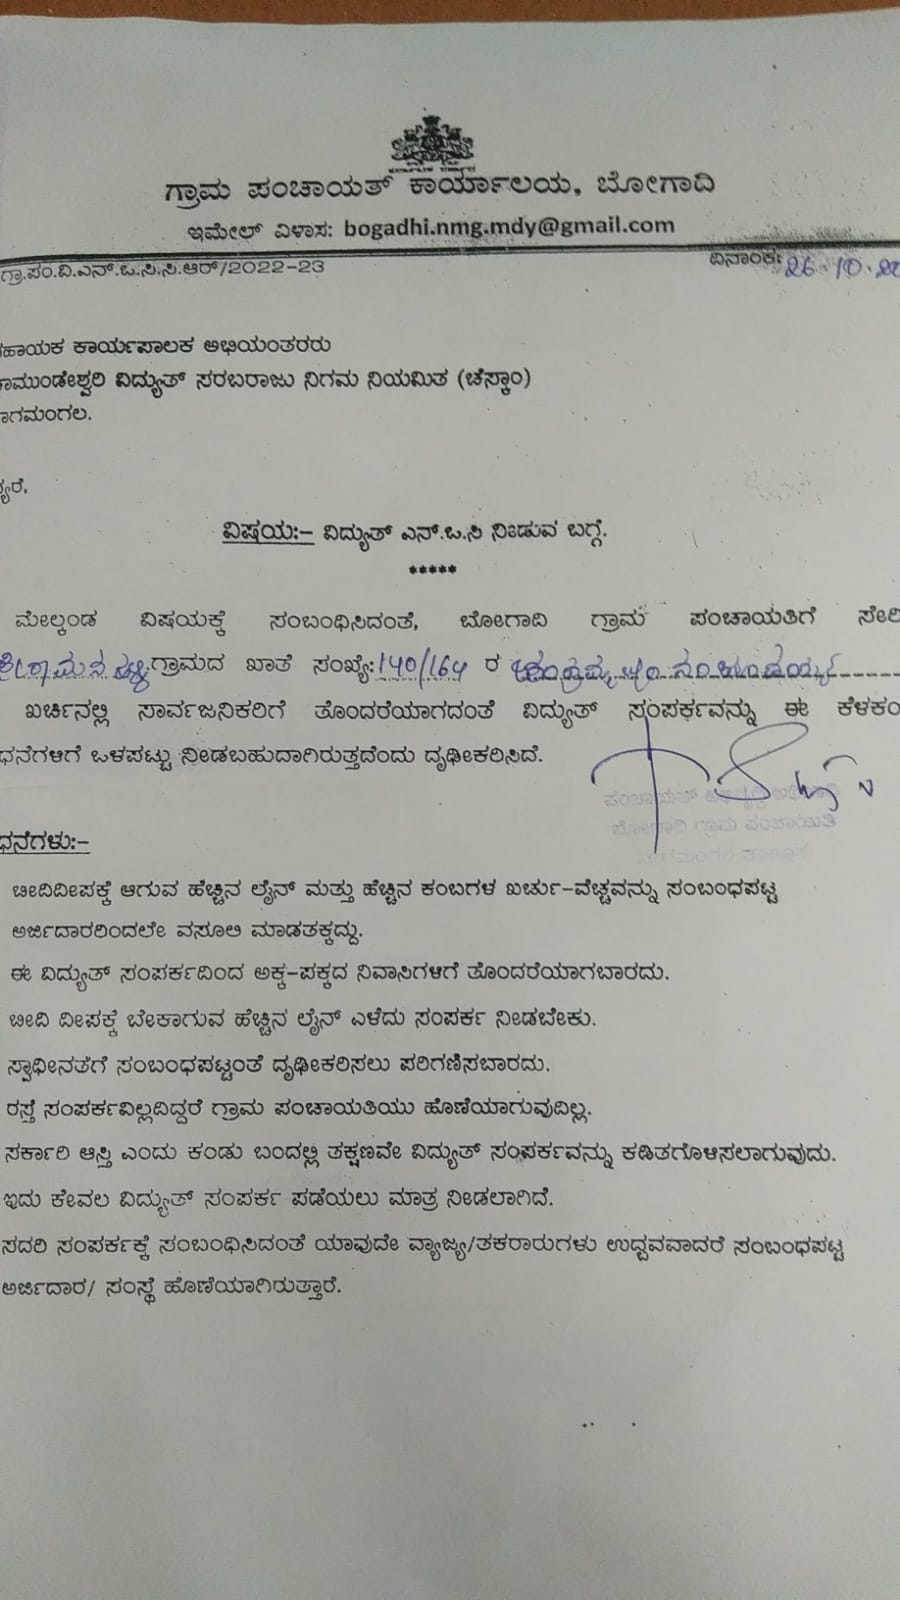 ಗ್ರಾಮ ಪಂಚಾಯತ್ ಕಾರ್ಯಾಲಯ, ಬೋಗಾದಿ
ಇಮೇಲ್ ವಿಳಾಸ: bogadhi.nmg.mdy@gmail.com
ಗ್ರಾ.ಪಂ.ವಿ.ಎನ್.ಒ.ಸಿ.ಸಿ.ಆರ್/2022-23 ದಿನಾಂಕ: 26.10.22
ಹಾಯಕ ಕಾರ್ಯಪಾಲಕ ಅಭಿಯಂತರರು
ಾಮುಂಡೇಶ್ವರಿ ವಿದ್ಯುತ್ ಸರಬರಾಜು ನಿಗಮ ನಿಯಮಿತ (ಚೆಸ್ಕಾಂ)
ಾಗಮಂಗಲ.
ನ್ಯರೆ,
ವಿಷಯ:- ವಿದ್ಯುತ್ ಎನ್.ಒ.ಸಿ ನೀಡುವ ಬಗ್ಗೆ.
*****
ಮೇಲ್ಕಂಡ ವಿಷಯಕ್ಕೆ ಸಂಬಂಧಿಸಿದಂತೆ, ಬೋಗಾದಿ ಗ್ರಾಮ ಪಂಚಾಯತಿಗೆ ಸೇರಿ
ಗ್ರಾಮದ ಖಾತೆ ಸಂಖ್ಯೆ: 140/164 ರ
ಖರ್ಚಿನಲ್ಲಿ ಸಾರ್ವಜನಿಕರಿಗೆ ತೊಂದರೆಯಾಗದಂತೆ ವಿದ್ಯುತ್ ಸಂಪರ್ಕವನ್ನು ಈ ಕೆಳಕಂ
ಧನೆಗಳಿಗೆ ಒಳಪಟ್ಟು ನೀಡಬಹುದಾಗಿರುತ್ತದೆಂದು ದೃಢೀಕರಿಸಿದೆ.
ಪಂಚಾಯತ್ ಅಭಿವೃದ್ಧಿ
ಬೋಗಾದಿ ಗ್ರಾಮ ಪಂಚಾಯಿತಿ
ಧನೆಗಳು:-
ಬೀದಿದೀಪಕ್ಕೆ ಆಗುವ ಹೆಚ್ಚಿನ ಲೈನ್ ಮತ್ತು ಹೆಚ್ಚಿನ ಕಂಬಗಳ ಖರ್ಚು-ವೆಚ್ಚವನ್ನು ಸಂಬಂಧಪಟ್ಟ
ಅರ್ಜಿದಾರರಿಂದಲೇ ವಸೂಲಿ ಮಾಡತಕ್ಕದ್ದು.
ಈ ವಿದ್ಯುತ್ ಸಂಪರ್ಕದಿಂದ ಅಕ್ಕ-ಪಕ್ಕದ ನಿವಾಸಿಗಳಿಗೆ ತೊಂದರೆಯಾಗಬಾರದು.
ಬೀದಿ ದೀಪಕ್ಕೆ ಬೇಕಾಗುವ ಹೆಚ್ಚಿನ ಲೈನ್ ಎಳೆದು ಸಂಪರ್ಕ ನೀಡಬೇಕು.
ಸ್ವಾಧೀನತೆಗೆ ಸಂಬಂಧಪಟ್ಟಂತೆ ದೃಢೀಕರಿಸಲು ಪರಿಗಣಿಸಬಾರದು.
ರಸ್ತೆ ಸಂಪರ್ಕವಿಲ್ಲದಿದ್ದರೆ ಗ್ರಾಮ ಪಂಚಾಯತಿಯು ಹೊಣೆಯಾಗುವುದಿಲ್ಲ.
ಸರ್ಕಾರಿ ಆಸ್ತಿ ಎಂದು ಕಂಡು ಬಂದಲ್ಲಿ ತಕ್ಷಣವೇ ವಿದ್ಯುತ್ ಸಂಪರ್ಕವನ್ನು ಕಡಿತಗೊಳಿಸಲಾಗುವುದು.
ಇದು ಕೇವಲ ವಿದ್ಯುತ್ ಸಂಪರ್ಕ ಪಡೆಯಲು ಮಾತ್ರ ನೀಡಲಾಗಿದೆ.
ಸದರಿ ಸಂಪರ್ಕಕ್ಕೆ ಸಂಬಂಧಿಸಿದಂತೆ ಯಾವುದೇ ವ್ಯಾಜ್ಯ/ತಕರಾರುಗಳು ಉದ್ಭವವಾದರೆ ಸಂಬಂಧಪಟ್ಟ
ಅರ್ಜಿದಾರ/ ಸಂಸ್ಥೆ ಹೊಣೆಯಾಗಿರುತ್ತಾರೆ.